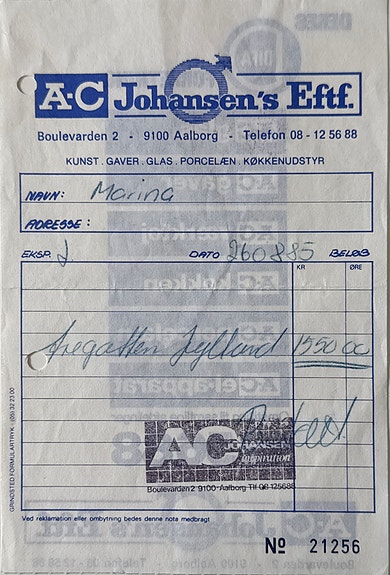 A·C Johansen's Eftf.
Boulevarden 2 - 9100 Aalborg - Telefon 08 - 12 56 88
KUNST . GAVER . GLAS . PORCELÆN . KØKKENUDSTYR
NAVN: Marina
ADRESSE:
EKSP. DATO 260885 BELØB
KR ØRE
Fregatten Jylland 1550 00
AC JOHANSEN
inspiration
Boulevarden 2 9100-Aalborg Tlf 08 125688
GRINDSTED FORMULARTRYK . (05) 32 23 00
Ved reklamation eller ombytning bedes denne nota medbragt
No 21256